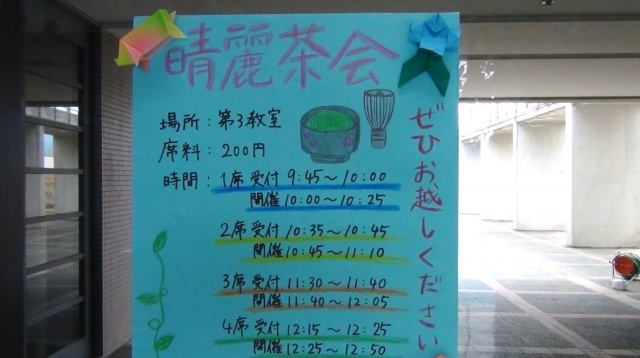 晴麗茶会
場所：第3教室
席料：200円
時間：1席 受付 9:45～10:00
開催 10:00～10:25
2席 受付 10:35～10:45
開催 10:45～11:10
3席 受付 11:30～11:40
開催 11:40～12:05
4席 受付 12:15～12:25
開催 12:25～12:50
ぜひお越しください